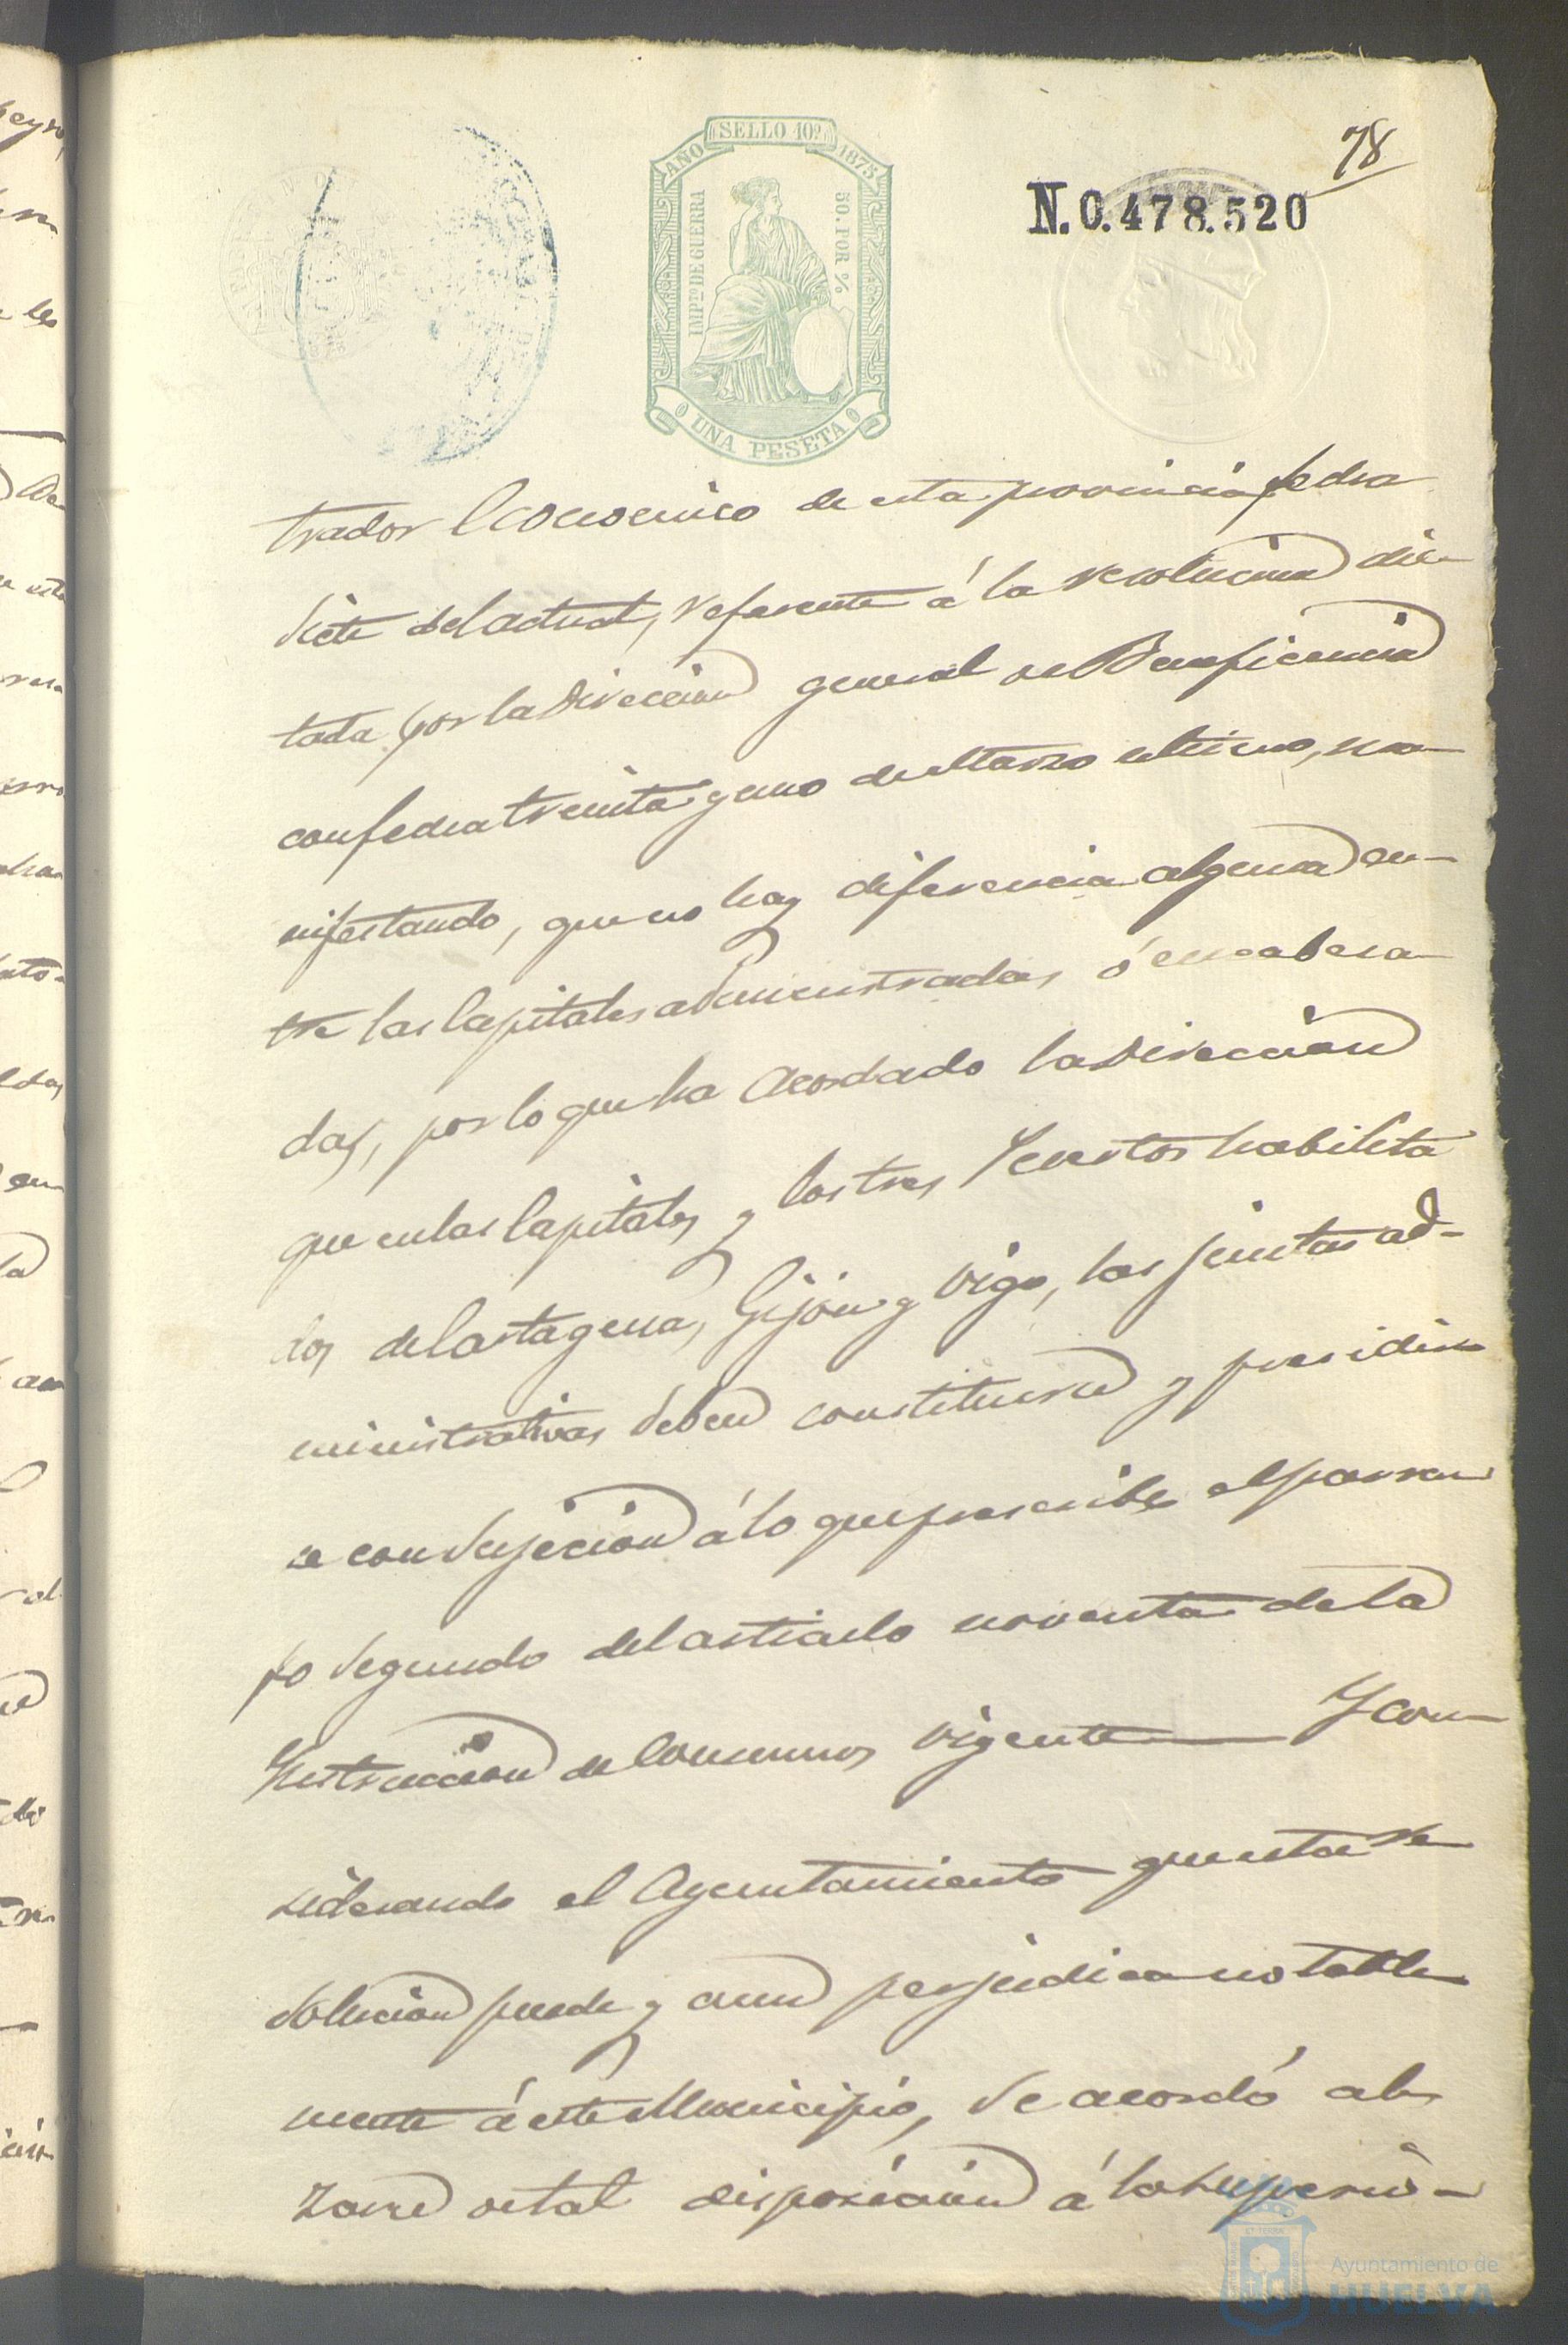 78
SELLO 10º
AÑO 1875
IMPTO DE GUERRA
50. POR %
UNA PESETA
N.0.478.520
trador Economico de esta provincia fecha
siete del actual, referente á la resolucion dic-
tada por la Direccion general de Beneficencia
con fecha treinta y uno de Marzo ultimo, ma-
nifestando, que no hay diferencia alguna en-
tre las Capitales administradas ó encabeza-
das, por lo que ha acordado la Direccion
que en las Capitales y los tres Puertos habilita
dos de Cartagena, Gijon y Vigo, las juntas ad-
ministrativas deben constituirse y presidir
se con sujecion á lo que prescribe el parra
fo segundo del articulo noventa de la
Instruccion de Consumos vigente Y con-
siderando el Ayuntamiento que esta re
solucion puede y aun perjudica notable
mente á este Municipio, se acordó al
zarse de tal disposicion á la Superio-
Ayuntamiento de
HUELVA